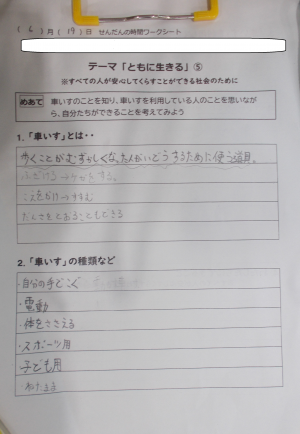 ( 6 )月( 19 )日 せんだんの時間ワークシート
テーマ「ともに生きる」⑤
※すべての人が安心してくらすことができる社会のために
めあて 車いすのことを知り、車いすを利用している人のことを思いなが
ら、自分たちができることを考えてみよう
1.「車いす」とは・・
歩くことがむずかしくなった人がいどうするために使う道具。
ふざける→ケガをする。
こえをかけ
だんさをとおることもできる
2.「車いす」の種類など
・自分の手でこぐ
・電動
・体をささえる
・スポーツ用
・子ども用